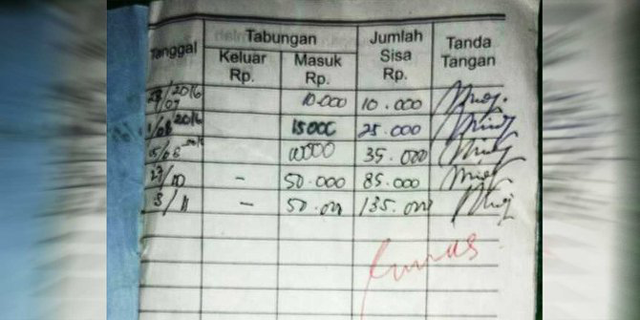 Tanggal Tabungan Jumlah Sisa Rp. Tanda Tangan
Keluar Rp. Masuk Rp.
29/07 2016 10.000 10.000
1/08 2016 15000 25.000
05/08 2016 10000 35.000
27/10 - 50.000 85.000
3/11 - 50.000 135.000
Lunas